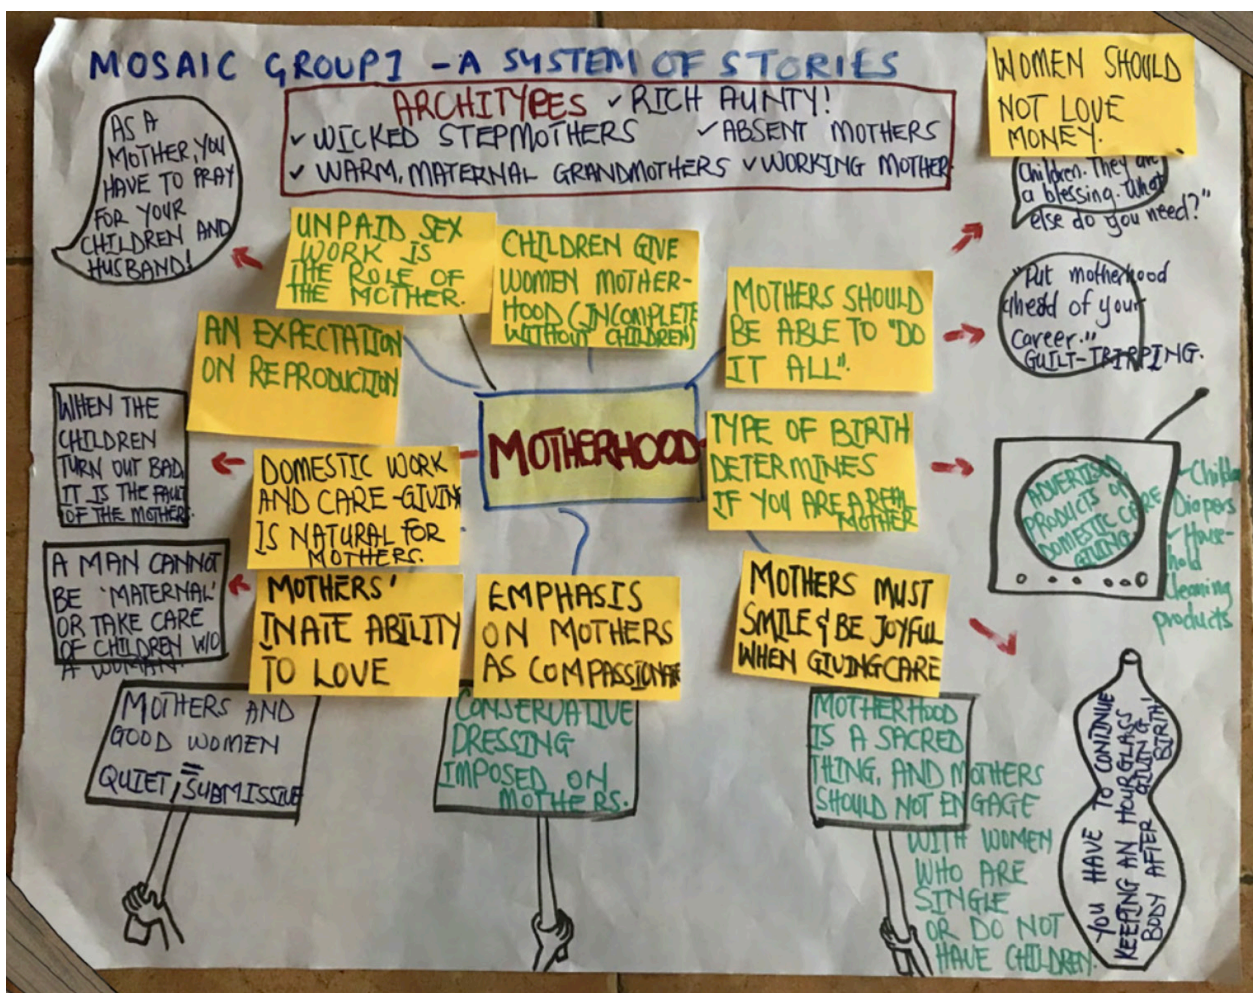 MOSAIC GROUP1 - A SYSTEM OF STORIES
ARCHITYPES ✓ RICH AUNTY!
✓ WICKED STEPMOTHERS ✓ ABSENT MOTHERS
✓ WARM, MATERNAL GRANDMOTHERS ✓ WORKING MOTHER
WOMEN SHOULD
NOT LOVE
MONEY.
Children. They are
a blessing. What
else do you need?"
AS A
MOTHER, YOU
HAVE TO PRAY
FOR YOUR
CHILDREN AND
HUSBAND!
UNPAID SEX
WORK IS
THE ROLE OF
THE MOTHER.
CHILDREN GIVE
WOMEN MOTHER-
HOOD (INCOMPLETE
WITHOUT CHILDREN)
MOTHERS SHOULD
BE ABLE TO "DO
IT ALL".
"Put motherhood
ahead of your
career."
GUILT-TRIPPING.
AN EXPECTATION
ON REPRODUCTION
MOTHERHOOD
TYPE OF BIRTH
DETERMINES
IF YOU ARE A REAL
MOTHER
WHEN THE
CHILDREN
TURN OUT BAD,
IT IS THE FAULT
OF THE MOTHERS.
DOMESTIC WORK
AND CARE-GIVING
IS NATURAL FOR
MOTHERS.
ADVERTISING
PRODUCTS OF
DOMESTIC CARE
GIVING.
Diapers
✓ House-
hold
cleaning
products
A MAN CANNOT
BE 'MATERNAL'
OR TAKE CARE
OF CHILDREN W/O
A WOMAN.
MOTHERS'
INATE ABILITY
TO LOVE
EMPHASIS
ON MOTHERS
AS COMPASSIONATE
MOTHERS MUST
SMILE & BE JOYFUL
WHEN GIVING CARE
MOTHERS AND
GOOD WOMEN
=
QUIET, SUBMISSIVE
CONSERVATIVE
DRESSING
IMPOSED ON
MOTHERS.
MOTHERHOOD
IS A SACRED
THING, AND MOTHERS
SHOULD NOT ENGAGE
WITH WOMEN
WHO ARE
SINGLE
OR DO NOT
HAVE CHILDREN.
YOU HAVE TO CONTINUE
KEEPING AN HOURGLASS
BODY AFTER GIVING
BIRTH!